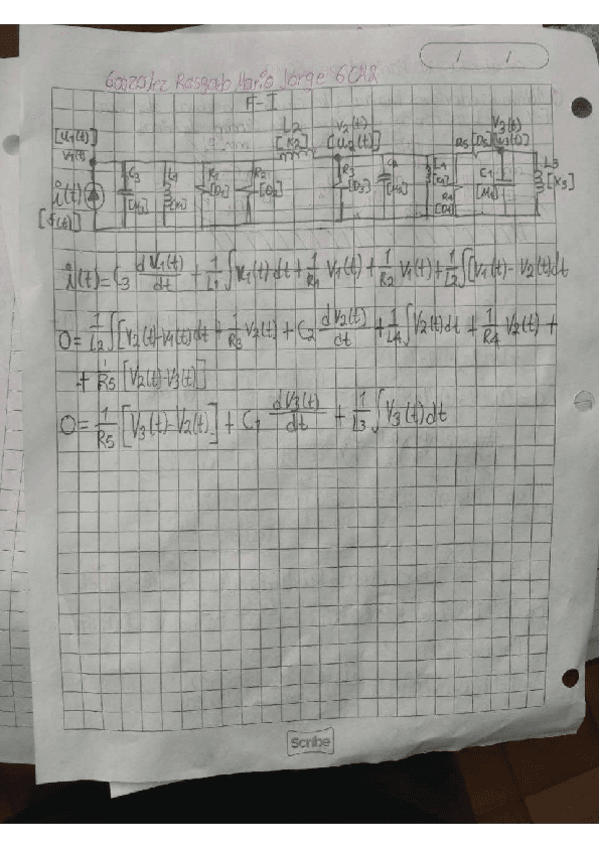 Gonzalez Rasgado Mario Jorge 6CM2
F-I
L2
[K2]
V2(t)
[U2(t)]
V3(t)
[U3(t)]
[U1(t)]
V1(t)
i(t)
[f(t)]
C3
[M3]
L1
[K1]
R1
[D1]
R2
[D2]
R3
[D3]
C2
[M2]
L4
[K4]
R4
[D4]
R5 [D5]
C1
[M1]
L3
[K3]
i(t) = C3 dV1(t)/dt + 1/L1 ∫ V1(t) dt + 1/R1 V1(t) + 1/R2 V1(t) + 1/L2 ∫ [V1(t) - V2(t)] dt
0 = 1/L2 ∫ [V2(t) - V1(t)] dt + 1/R3 V2(t) + C2 dV2(t)/dt + 1/L4 ∫ V2(t) dt + 1/R4 V2(t) +
+ 1/R5 [V2(t) - V3(t)]
0 = 1/R5 [V3(t) - V2(t)] + C1 dV3(t)/dt + 1/L3 ∫ V3(t) dt
Scribe